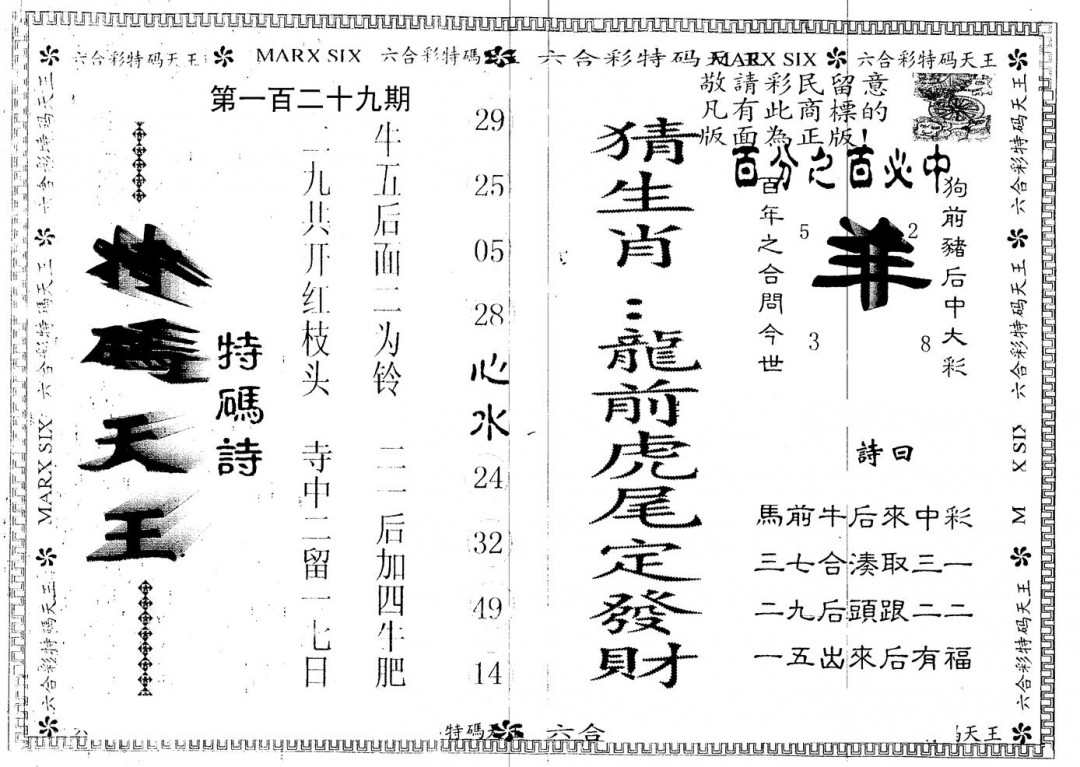 六合彩特码天王
MARX SIX
六合彩特碼
六合彩特码天王
MARX SIX
六合彩特码天王
第一百二十九期
特碼天王
特碼詩
二九共开红枝头 寺中二留一七日
牛五后面二为铃 二一后加四牛肥
29
25
05
28
心水
24
32
49
14
猜生肖：龍前虎尾定發財
敬請彩民留意
凡有此商標的
版面為正版！
百分之百必中
百年之合問今世
5
2
羊
3
8
狗前豬后中大彩
詩曰
馬前牛后來中彩
三七合湊取三一
二九后頭跟二二
一五出來后有福
六合彩特码天王
六合彩特码天王
MARX SIX
六合彩特碼天王
六合彩特码天王
六合彩特码天王
X SIX
M
六合彩特码天王
特碼天
六合
天王